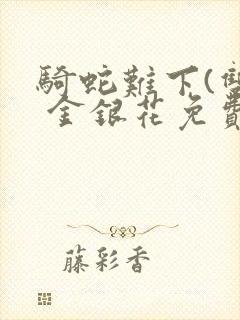 騎蛇難下(雙
金銀花免費
藤彩香